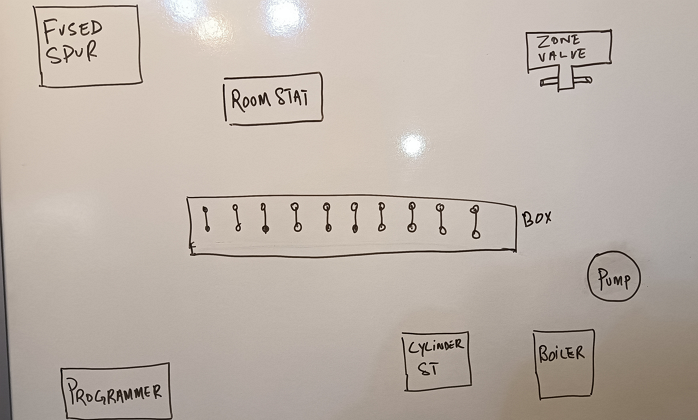 FUSED
SPUR
ZONE
VALVE
ROOM STAT
BOX
PUMP
CYLINDER
ST
BOILER
PROGRAMMER